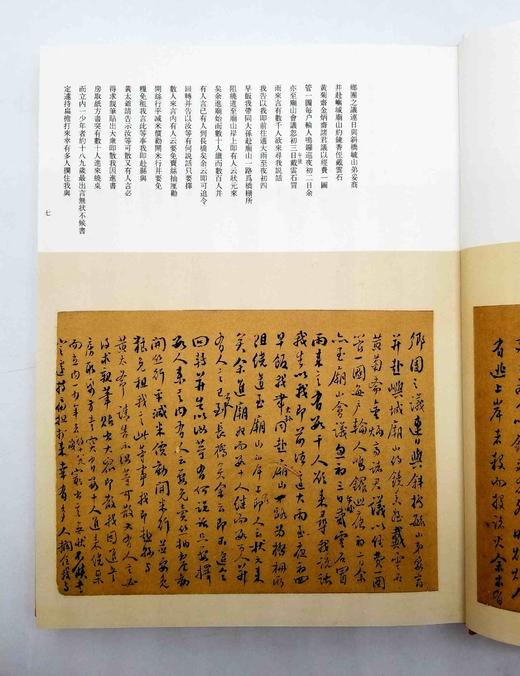 鄉團之議連日與斜橋毓山弟妥商
并赴嶼城廟山約鏡香侄戴雲石
黃菊齋金炳齋諸君議以經費一圖
管一圖每戶輪人鳴鑼巡夜初二日余
亦至廟山會議忽初三日戴雲石冒
午後
雨來言有數千人欲來尋我說話
我告以我即前往適大雨至夜初四
早飯我帶同大孫赴廟山一路爲橋柵所
阻繞道至廟山岸上即有人云狀元來
矣余進廟始而數十人繼而數百人并
有人言已有人到長橋矣余云即可追令
回轉并告以汝等有何說話只要擇
數人來言內有人云要免賣絲抽厘勸
開絲行平減米價勸開米行并要免
糧免租我言此等事我即赴縣與
黃太爺請告示汝等可散又有人言必
得求親筆貼出大衆即散我因進書
房取紙方書突有數十人進來繞桌
而立內一少年者約十八九歲最出言無狀不候書
定遽持扁擔打來幸有多人攔住我與
七
鄉團之議連日與斜橋毓山弟妥商
并赴嶼城廟山約鏡香侄戴雲石
黃菊齋金炳齋諸君議以經費一圖
管一圖每戶輪人鳴鑼巡夜初二日余
亦至廟山會議忽初三日戴雲石冒
雨來言有數千人欲來尋我說話
我告以我即前往適大雨至夜初四
早飯我帶同大孫赴廟山一路爲橋柵所
阻繞道至廟山岸上即有人云狀元來
矣余進廟始而數十人繼而數百人并
有人言已有人到長橋矣余云即可追令
回轉并告以汝等有何說話只要擇
數人來言內有人云要免賣絲抽厘勸
開絲行平減米價勸開米行并要免
糧免租我言此等事我即赴縣與
黃太爺請告示汝等可散又有人言必
得求親筆貼出大衆即散我因進書
房取紙方書突有數十人進來繞桌
而立內一少年者約十八九歲最出言無狀不候書
定遽持扁擔打來幸有多人攔住我與